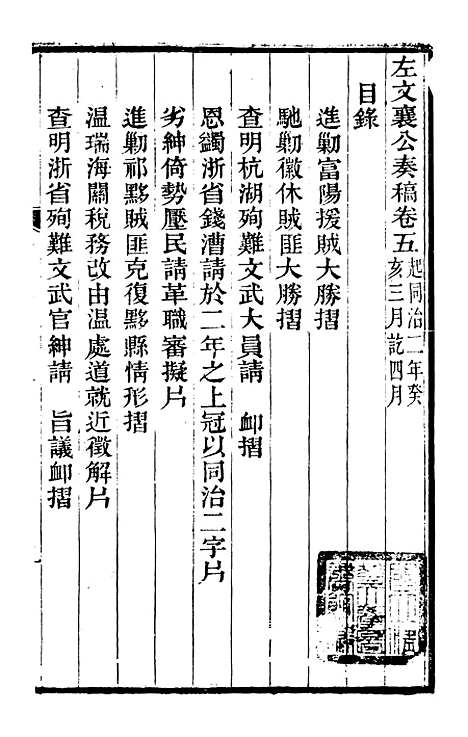 左文襄公奏稿卷五起同治二年癸
亥三月訖四月
目錄
進勦富陽援賊大勝摺
馳勦徽休賊匪大勝摺
查明杭湖殉難文武大員請　卹摺
恩蠲浙省錢漕請於二年之上冠以同治二字片
劣紳倚勢壓民請革職審擬片
進勦祁黟賊匪克復黟縣情形摺
溫瑞海關稅務改由溫處道就近徵解片
查明浙省殉難文武官紳請　旨議卹摺